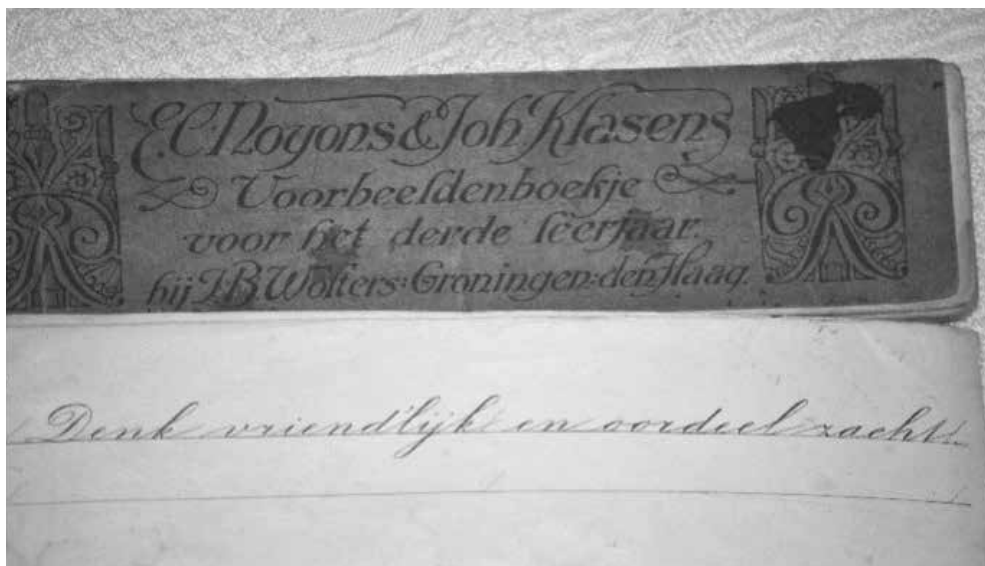 E.C. Noyons & Joh Klasens
Voorbeeldenboekje
voor het derde leerjaar.
bij J.B. Wolters: Groningen: den Haag.
Denk vriend'lijk en oordeel zacht